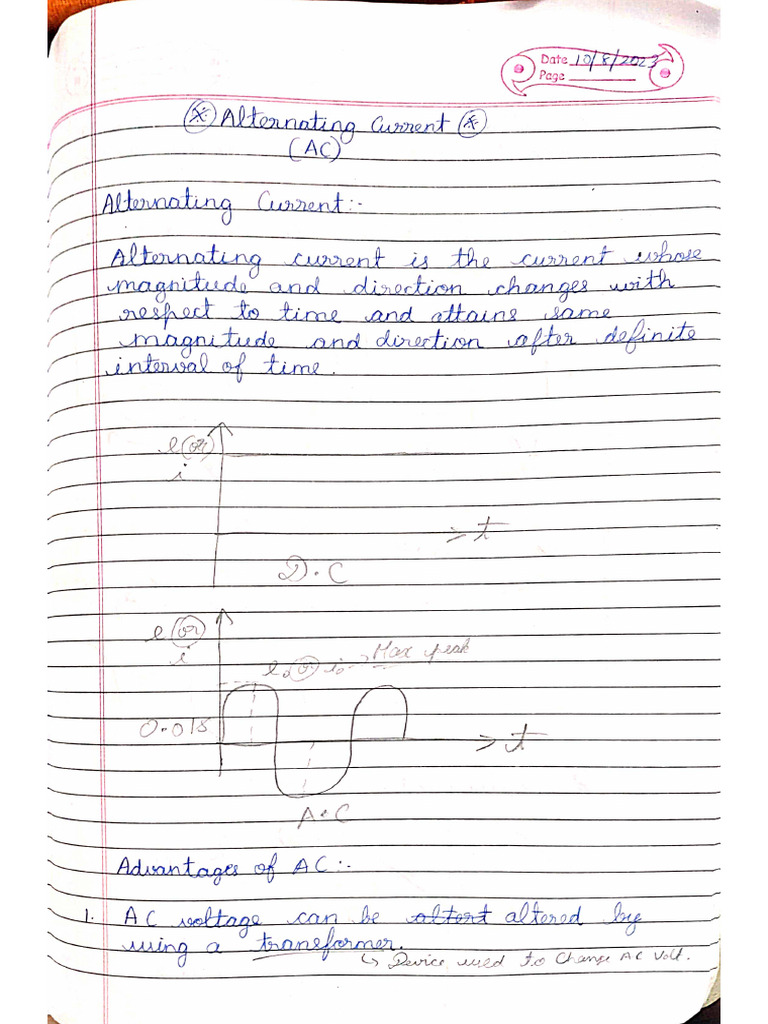 Date 10/8/2023
Page
Alternating Current
(AC)
Alternating Current:-
Alternating current is the current whose
magnitude and direction changes with
respect to time and attains same
magnitude and direction after definite
interval of time.
e (or)
i
t
D.C
e (or)
i
e₀ (or) i₀ → Max peak
0.01s
t
A.C
Advantages of AC:-
1. AC voltage can be altert altered by
using a transformer.
↳ Device used to change AC Volt.